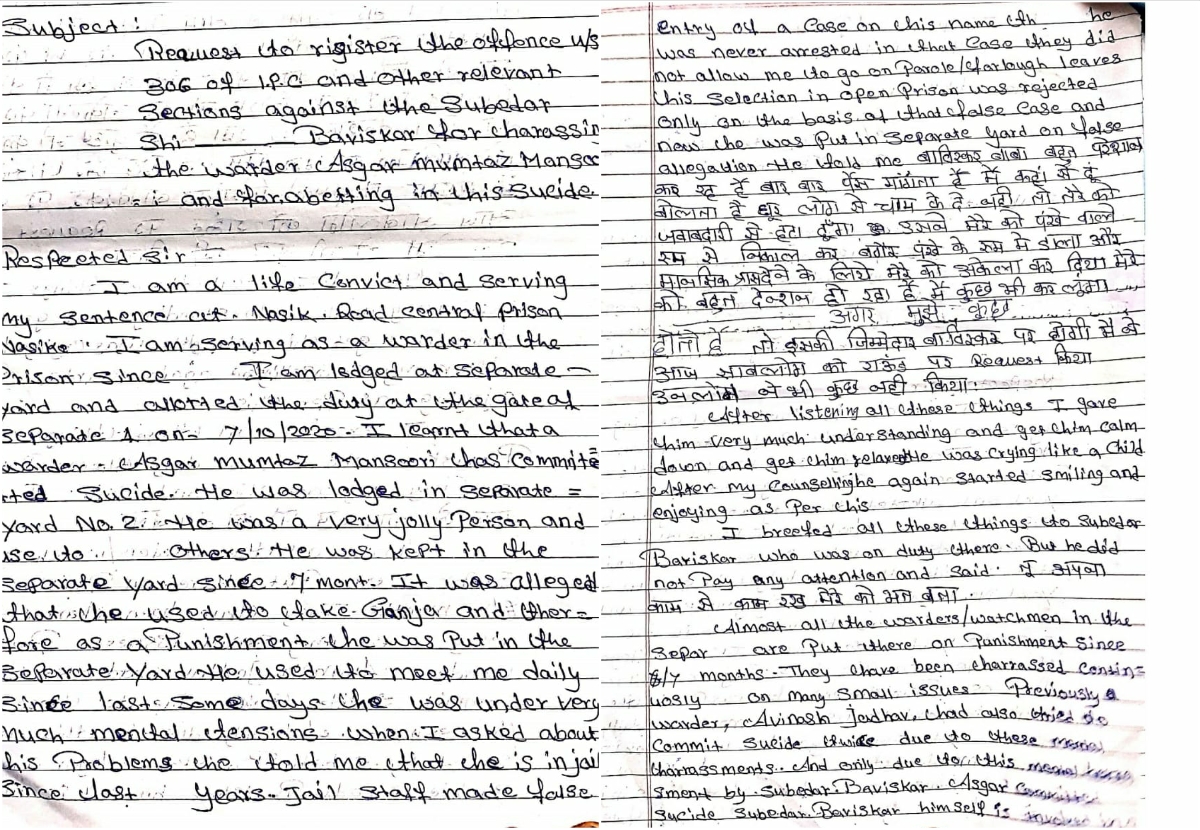 Subject :
Request to rigister the offence u/s
306 of I.P.C and other relevant
Sections against the Subedar
Shi Baviskar for harassin
the warder Asgar mumtaz Mansoo
and for abetting in his Sucide
Respected Sir
I am a life Convict and serving
my sentence at. Nasik. Road central prison
Nasike. I am serving as a warder in the
Prison since I am lodged at separate -
yard and allotted the duty at the gate of
separate 1 on- 7/10/2020- I learnt that a
warder - Asgar mumtaz Mansoori has Committe
tted Sucide. He was lodged in separate =
yard No. 2. He was a very jolly Person and
use to others. He was kept in the
separate yard since 7 mont. It was alleged
that he used to take Ganja and ther=
fore as a Punishment he was Put in the
separate yard He used to meet me daily
since last some days he was under very
much mental tensions when I asked about
his Problems he told me that he is in jail
since last years. Jail Staff made false
entry of a Case on his name he
was never arrested in that Case they did
not allow me to go on Parole/farlough leaves
his selection in open Prison was rejected
only on the basis of that false Case and
now he was Put in Separate yard on false
allegation He told me बाविस्कर बाबा बहुत परेशान
कर रह हैं बार बार पैसा मांगता हैं में कहां से दूं
बोलता है घर लोग से नहीं तो तेरे को
जवाबदारी से हटा दूंगा उसने मेरे को पंखे वाले
रूम से निकाल कर बगैर पंखे के रूम मे डाला और
मानसिक त्रास देने के लिये मेरे को अकेला कर दिया मेरे
को बहुत टेन्शन हो रहा हैं में कुछ भी कर लूंगा
अगर मुझे कुछ
होतो हैं तो इसकी जिम्मेदार बाविस्कर पर होगी मे ने
आज साबलोग को राऊंड पर Request किया
उनलोग ने भी कुछ नहीं किया.
After listening all these things I gave
him very much understanding and get him calm
down and get him relaxed He was crying like a Child
After my Counselling he again started smiling and
enjoying as Per his
I breefed all these things to Subedar
Baviskar who was on duty there. But he did
not Pay any attention and said. तू अपना
काम से काम रख मेरे को मत बता.
Almost all the warders/watchmen in the
Separ are Put there on Punishment since
6/7 months. They have been harrassed contin=
uosly on many small issues Previously a
warder, Avinash jadhav, had also tried to
Commit Sucide twice due to these
harrassments. And only due to this
sment by Subedar Baviskar. Asgar
Sucide Subedar Baviskar himself is involved in